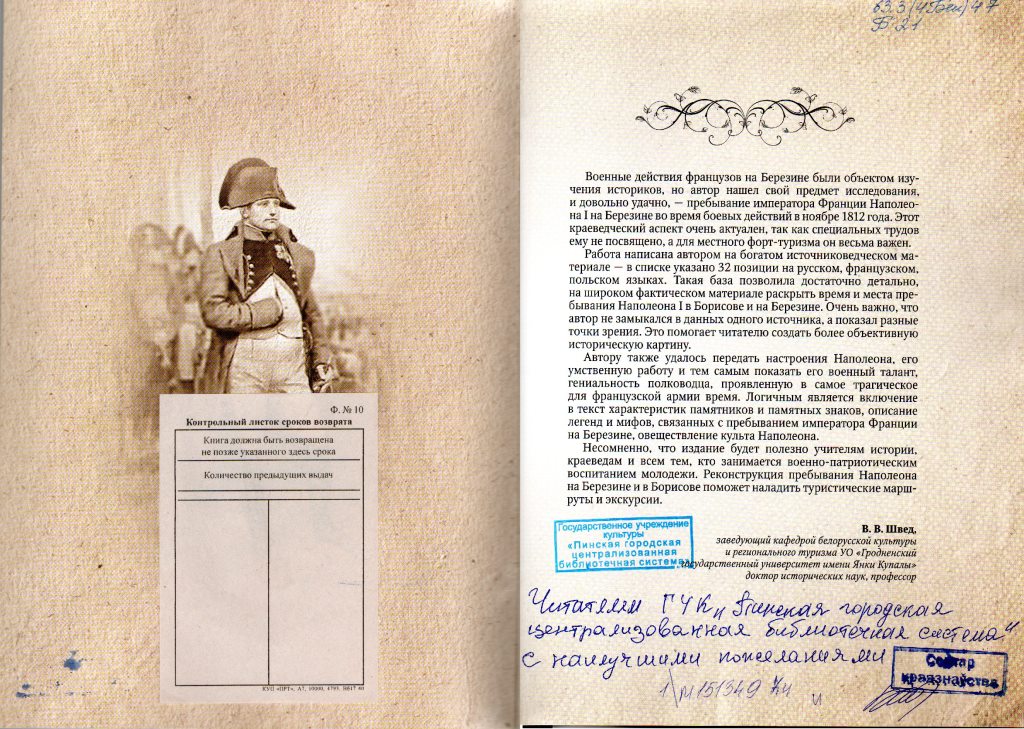 Ф. № 10
Контрольный листок сроков возврата
Книга должна быть возвращена
не позже указанного здесь срока
Количество предыдущих выдач
КУП «ПРТ», А7, 10000, 4793,
63.3(4Беи)47
Б 21
Военные действия французов на Березине были объектом изу-
чения историков, но автор нашел свой предмет исследования,
и довольно удачно, — пребывание императора Франции Наполео-
на I на Березине во время боевых действий в ноябре 1812 года. Этот
краеведческий аспект очень актуален, так как специальных трудов
ему не посвящено, а для местного форт-туризма он весьма важен.
Работа написана автором на богатом источниковедческом ма-
териале — в списке указано 32 позиции на русском, французском,
польском языках. Такая база позволила достаточно детально,
на широком фактическом материале раскрыть время и места пре-
бывания Наполеона I в Борисове и на Березине. Очень важно, что
автор не замыкался в данных одного источника, а показал разные
точки зрения. Это помогает читателю создать более объективную
историческую картину.
Автору также удалось передать настроения Наполеона, его
умственную работу и тем самым показать его военный талант,
гениальность полководца, проявленную в самое трагическое
для французской армии время. Логичным является включение
в текст характеристик памятников и памятных знаков, описание
легенд и мифов, связанных с пребыванием императора Франции
на Березине, овеществление культа Наполеона.
Несомненно, что издание будет полезно учителям истории,
краеведам и всем тем, кто занимается военно-патриотическим
воспитанием молодежи. Реконструкция пребывания Наполеона
на Березине и в Борисове поможет наладить туристические марш-
руты и экскурсии.
В. В. Швед,
заведующий кафедрой белорусской культуры
и регионального туризма УО «Гродненский
государственный университет имени Янки Купалы»
доктор исторических наук, профессор
Государственное учреждение
культуры
«Пинская городская
централизованная
библиотечная система»
Читателям ГУК „Пинская городская
централизованная библиотечная система“
с наилучшими пожеланиями
Сектар
краязнаўства
151349